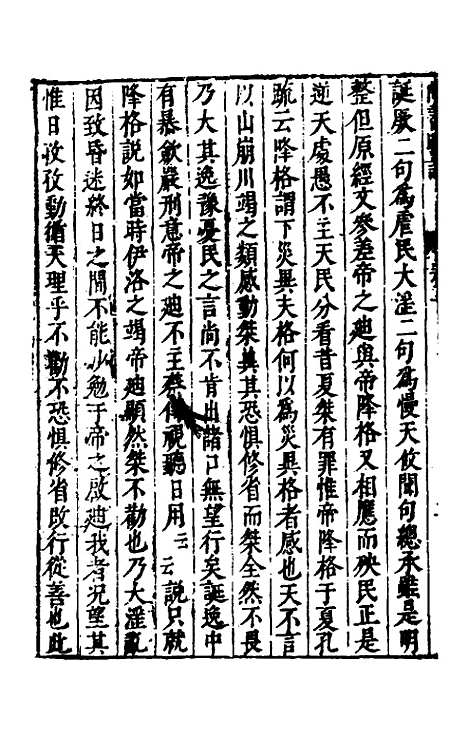 誕厥二句爲虐民大淫二句爲慢天攸聞句總承雖是明
整但原經文參差帝之廸與帝降格又相應而殃民正是
逆天處愚不主天民分看昔夏桀有罪惟帝降格于夏孔
疏云降格謂下災異夫格何以爲災異格者感也天不言
以山崩川竭之類感動桀兾其恐惧修省而桀全然不畏
乃大其逸豫憂民之言尚不肯出諸口無望行矣誕逸中
有暴斂嚴刑意帝之廸不主蔡傳視聽日用云云說只就
降格說如當時伊洛之竭帝廸顯然桀不勸也乃大淫亂
因致昏迷終日之間不能少勉于帝之啟廸我者况望其
惟日孜孜動循天理乎不勸不恐惧修省改行從善也此